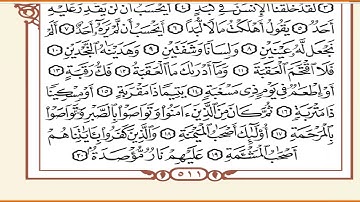 ٣ لَقَدْ خَلَقْنَا الْإِنْسَٰنَ فِى كَبَدٍ ٤ أَيَحْسَبُ أَنْ لَنْ يَقْدِرَ عَلَيْهِ
أَحَدٌ ٥ يَقُولُ أَهْلَكْتُ مَالًا لُبَدًا ٦ أَيَحْسَبُ أَنْ لَمْ يَرَهُ أَحَدٌ ٧ أَلَمْ
نَجْعَلْ لَهُ عَيْنَيْنِ ٨ وَلِسَانًا وَشَفَتَيْنِ ٩ وَهَدَيْنَٰهُ النَّجْدَيْنِ ١٠
فَلَا اقْتَحَمَ الْعَقَبَةَ ١١ وَمَا أَدْرَىٰكَ مَا الْعَقَبَةُ ١٢ فَكُّ رَقَبَةٍ ١٣
أَوْ إِطْعَٰمٌ فِى يَوْمٍ ذِى مَسْغَبَةٍ ١٤ يَتِيمًا ذَا مَقْرَبَةٍ ١٥ أَوْ مِسْكِينًا
ذَا مَتْرَبَةٍ ١٦ ثُمَّ كَانَ مِنَ الَّذِينَ ءَامَنُوا وَتَوَاصَوْا بِالصَّبْرِ وَتَوَاصَوْا
بِالْمَرْحَمَةِ ١٧ أُولَٰئِكَ أَصْحَٰبُ الْمَيْمَنَةِ ١٨ وَالَّذِينَ كَفَرُوا بِـَٔايَٰتِنَا هُمْ
أَصْحَٰبُ الْمَشْـَٔمَةِ ١٩ عَلَيْهِمْ نَارٌ مُؤْصَدَةٌ ٢٠
٥١١